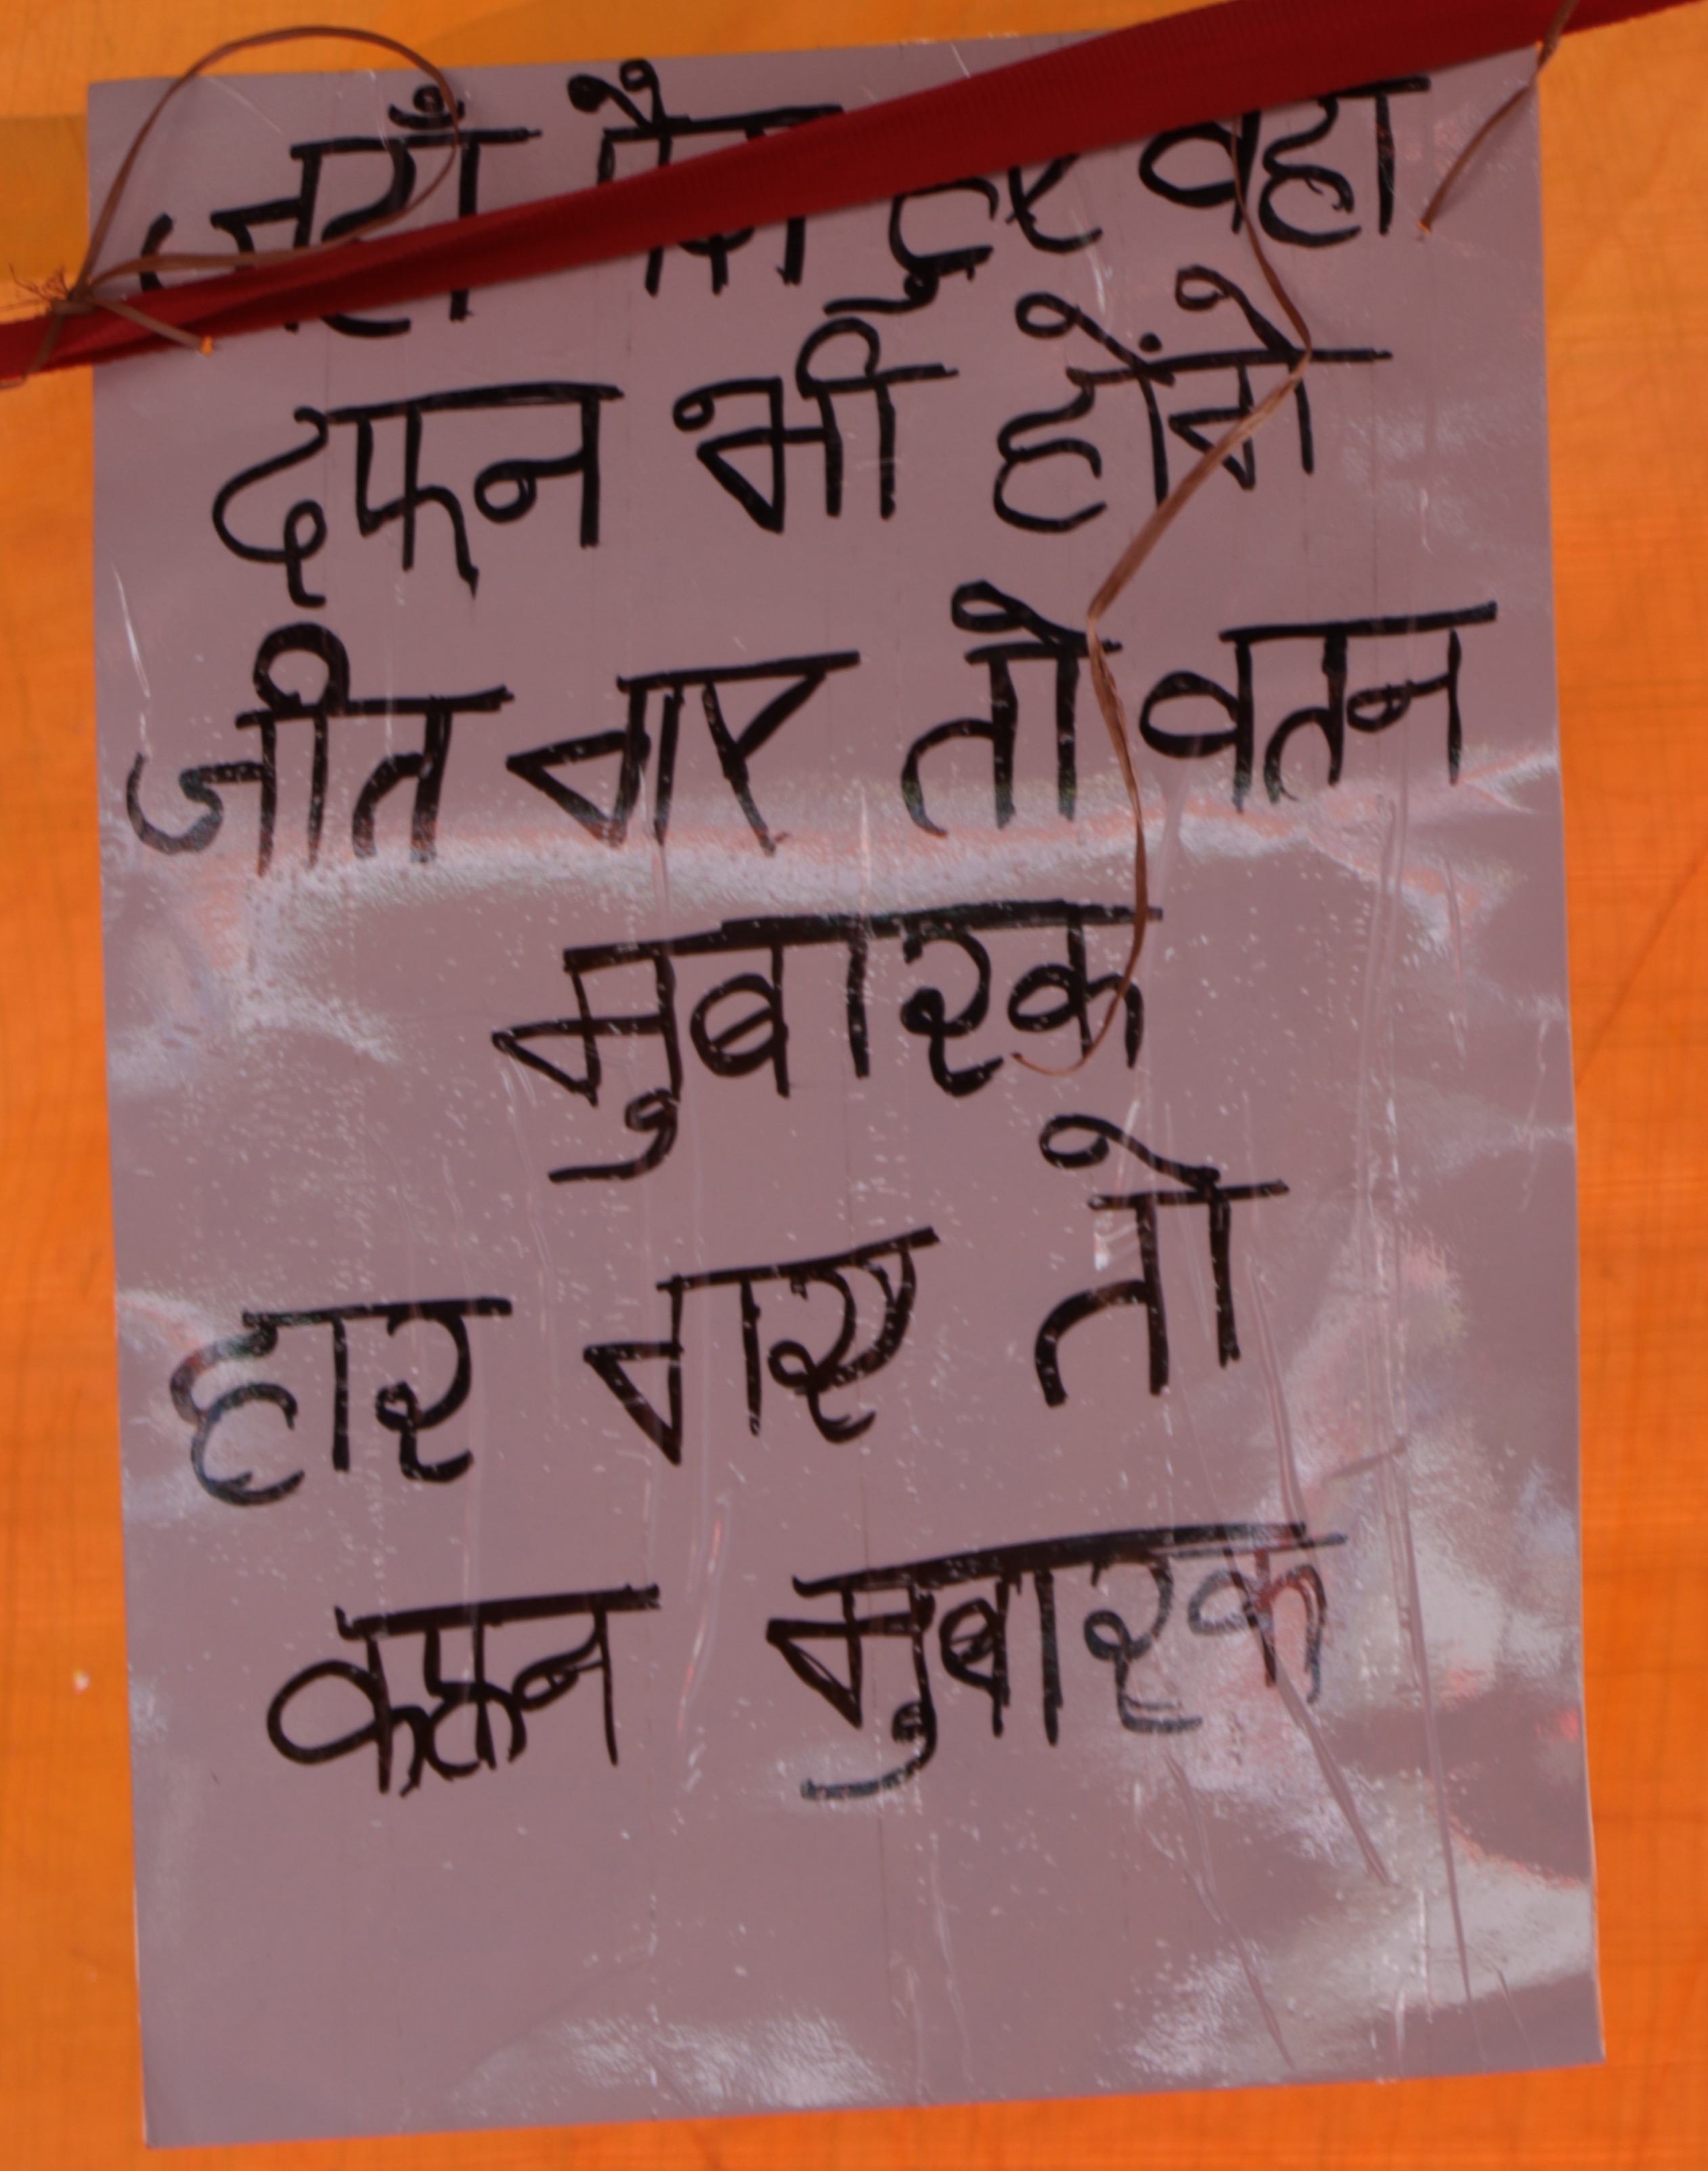 जहाँ पैदा हुए वहा
दफन भी होंगे
जीत गए तो वतन
मुबारक
हार गए तो
कफन मुबारक